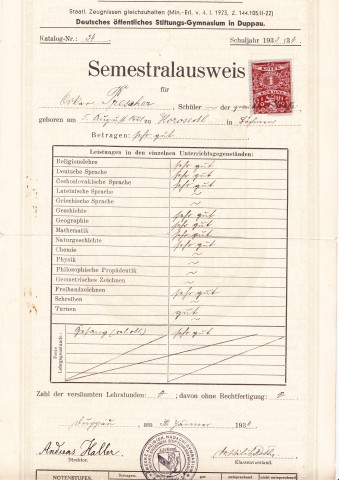 Staatl. Zeugnissen gleichzuhalten (Min.-Erl. v. 4. I. 1923, Z. 144.105/II-22)
Deutsches öffentliches Stiftungs-Gymnasium in Duppau.
Katalog-Nr.: 24 Schuljahr 193
Semestralausweis
für
Oskar Prescher, Schüler — der
geboren am 5. August 1921 zu Horosedl in Böhmen
Betragen: sehr gut
Leistungen in den einzelnen Unterrichtsgegenständen:
Religionslehre sehr gut
Deutsche Sprache sehr gut
Čechoslovakische Sprache sehr gut
Lateinische Sprache sehr gut
Griechische Sprache ~
Geschichte sehr gut
Geographie sehr gut
Mathematik sehr gut
Naturgeschichte sehr gut
Chemie ~
Physik ~
Philosophische Propädeutik ~
Geometrisches Zeichnen ~
Freihandzeichnen sehr gut
Schreiben ~
Turnen gut
Freie Lehrgegenstände: Gesang sehr gut
Zahl der versäumten Lehrstunden: 0; davon ohne Rechtfertigung: 0.
Duppau am Jänner 193
Andreas Haller
Direktor. Klassenvorstand.
NOTENSTUFEN. Betragen: sehr gut gut